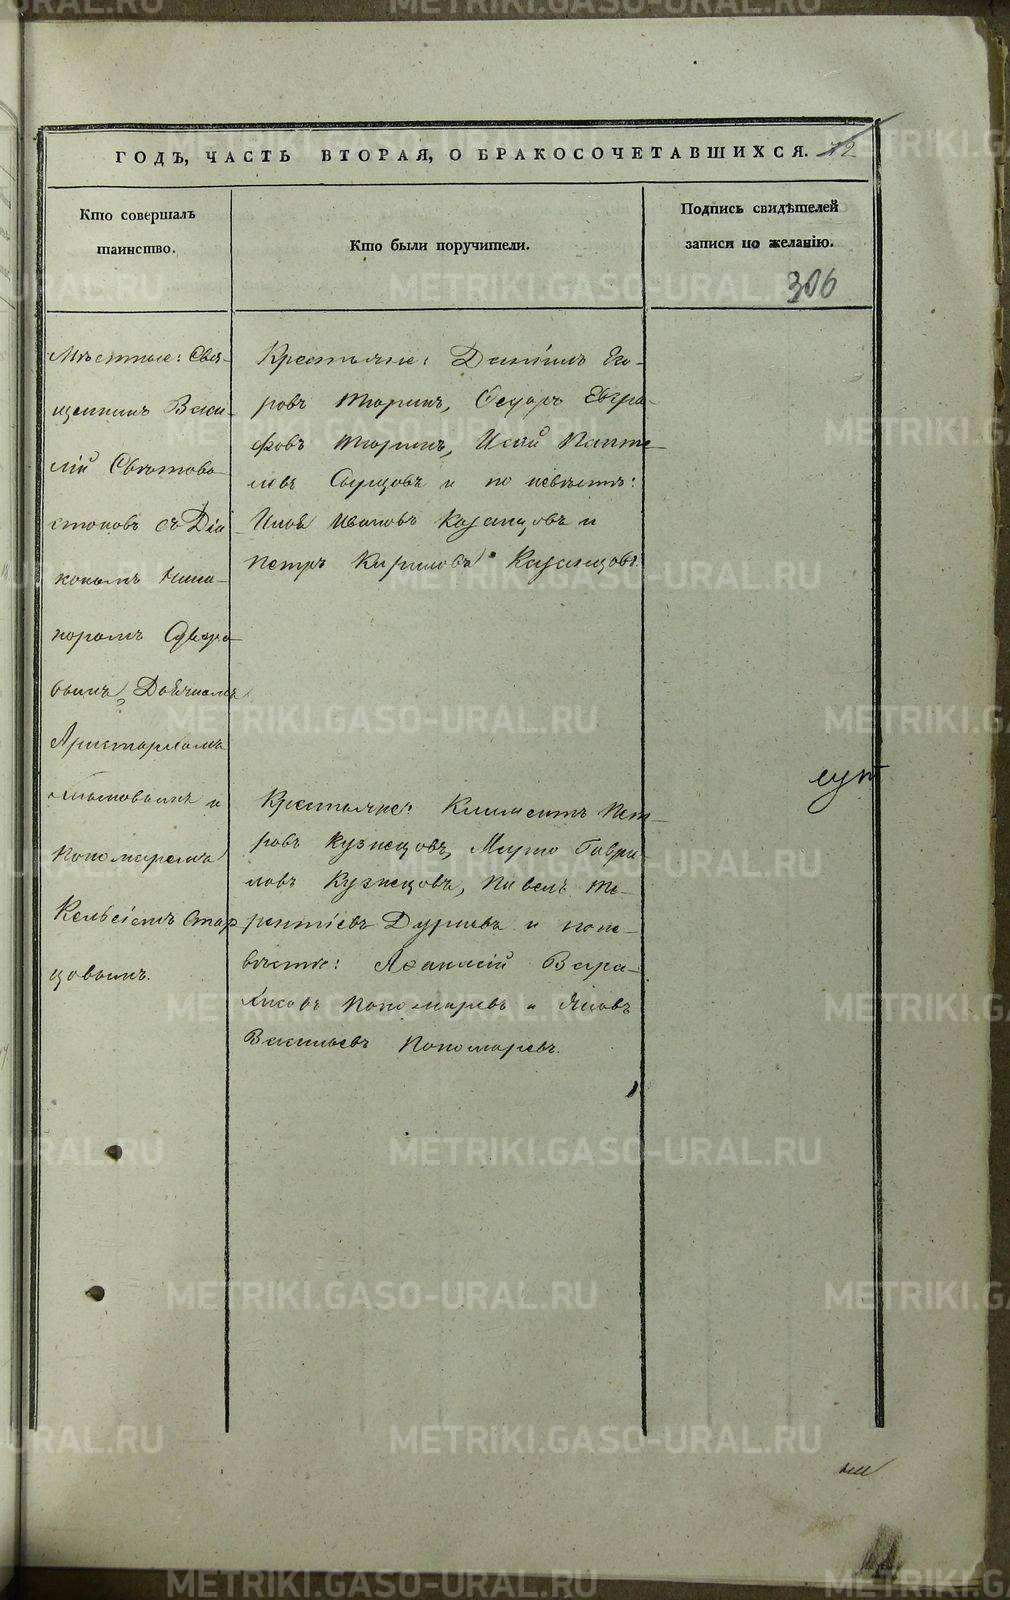 ГОДЪ, ЧАСТЬ ВТОРАЯ, О БРАКОСОЧЕТАВШИХСЯ.
Кто совершалъ
таинство.
Кто были поручители.
Подпись свидѣтелей
записи по желанію.
306
Мѣстные: Свя-
щенникъ Васи-
лій Свѣтоно-
стоновъ съ Діа
кономъ Ника-
норомъ
Дьячкомъ
Аристархомъ
и
Пономаремъ
Келсіемъ Стар
цовымъ.
Крестьяне: Даніилъ Его-
ровъ Тюринъ, Ѳедоръ Евгра-
фовъ Тюринъ, Исай Панте-
леевъ и по невѣстѣ:
Иванъ Ивановъ Казанцовъ и
Петръ Кириловъ Казанцовъ.
Крестьяне: Климентъ Пет-
ровъ Кузнецовъ, Гаври-
ловъ Кузнецовъ, Павелъ Те-
рентіевъ Дурневъ и по не-
вѣстѣ: Аѳанасій Вара-
ксовъ Пономаревъ и Яковъ
Васильевъ Пономаревъ.
METRIKI.GASO-URAL.RU